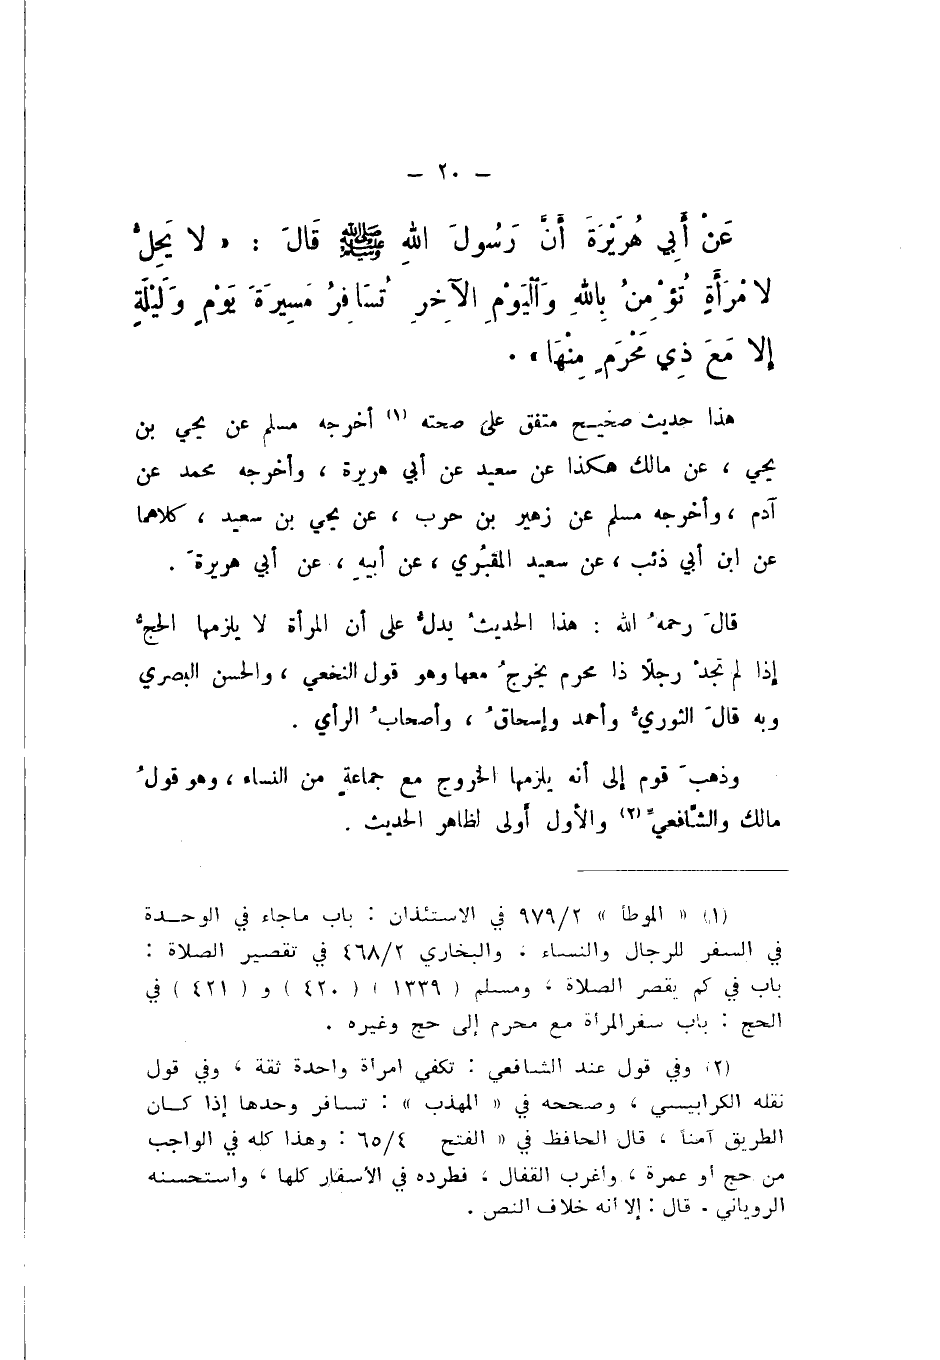 — ٢٠ —
عَنْ أَبِي هُرَيْرَةَ أَنَّ رَسُولَ اللهِ ﷺ قَالَ : « لا يَحِلُّ
لامْرَأَةٍ تُؤْمِنُ بِاللهِ وَٱلْيَوْمِ الآخِرِ تُسَافِرُ مَسِيرَةَ يَوْمٍ وَلَيْلَةٍ
إلا مَعَ ذِي مَحْرَمٍ مِنْهَا » .
هذا حديث صحيح متفق على صحته (١) أخرجه مسلم عن يحيى بن
يحيى ، عن مالك هكذا عن سعيد عن أبي هريرة ، وأخرجه محمد عن
آدم ، وأخرجه مسلم عن زهير بن حرب ، عن يحيى بن سعيد ، كلاهما
عن ابن أبي ذئب ، عن سعيد المقبُري ، عن أبيهِ ، عن أبي هريرةَ .
قالَ رحمهُ الله : هذا الحديثُ يدلُّ على أن المرأة لا يلزمها الحجُّ
إذا لم تجدْ رجلًا ذا محرم يخرجُ معها وهو قول النخعي ، والحسن البصري
وبه قالَ الثوريُّ وأحمد وإسحاقُ ، وأصحابُ الرأي .
وذهبَ قوم إلى أنه يلزمها الخروج مع جماعةٍ من النساء ، وهو قولُ
مالك والشَّافعيِّ (٢) والأول أولى لظاهر الحديث .
(١) « الموطأ » ٩٧٩/٢ في الاستئذان : باب ماجاء في الوحدة
في السفر للرجال والنساء . والبخاري ٤٦٨/٢ في تقصير الصلاة :
باب في كم يقصر الصلاة ، ومسلم ( ١٣٣٩ ) ( ٤٢٠ ) و ( ٤٢١ ) في
الحج : باب سفر المرأة مع محرم إلى حج وغيره .
(٢) وفي قول عند الشافعي : تكفي امرأة واحدة ثقة ، وفي قول
نقله الكرابيسي ، وصححه في « المهذب » : تسافر وحدها إذا كان
الطريق آمناً ، قال الحافظ في « الفتح ٦٥/٤ : وهذا كله في الواجب
من حج أو عمرة ، وأغرب القفال ، فطرده في الأسفار كلها ، واستحسنه
الروياني . قال : إلا أنه خلاف النص .